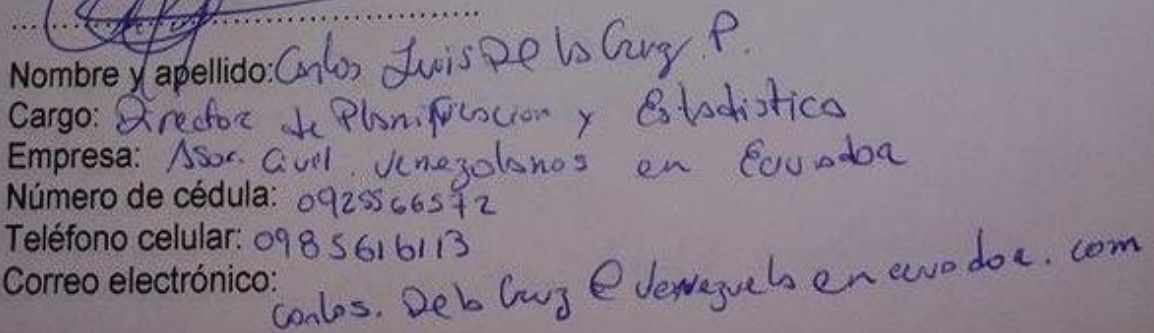 Nombre y apellido: Carlos Luis De la Cruz P.
Cargo: Director de Planificacion y Estadistica
Empresa: Asoc. Civil. Venezolanos en Ecuador
Número de cédula: 0925566572
Teléfono celular: 0985616113
Correo electrónico:
Carlos.DelaCruz@venezuelaenecuador.com